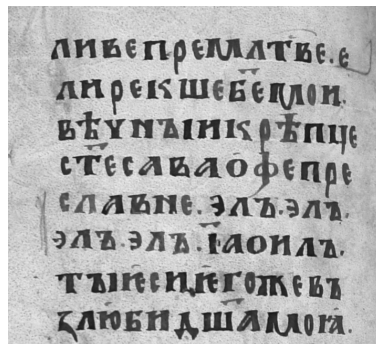 ливепремлтве.е
лирекшебеплои.
вѣчнъıиıкрѣпце
стесаваоѳепре
славне.элъ.элъ.
элъ.элъ.їаоилъ.
тъıѥсиѥгожевъ
ꙁлюбидшамоꙗ.